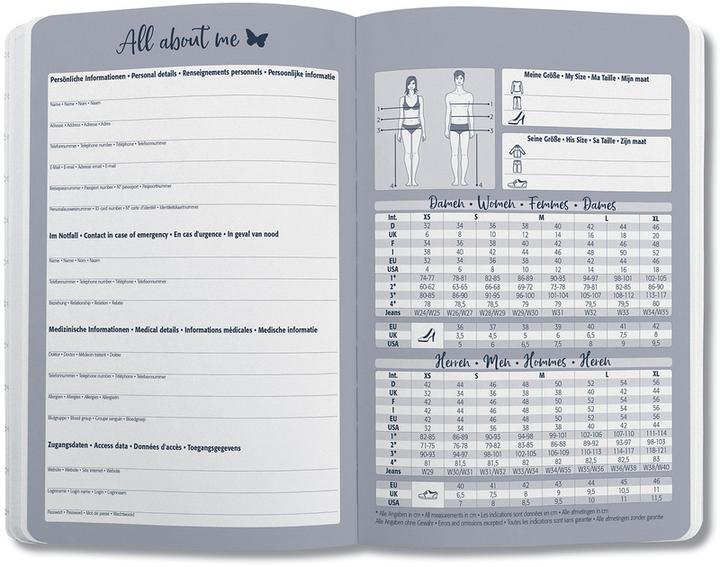 All about me
Persönliche Informationen • Personal details • Renseignements personnels • Persoonlijke informatie
Name • Name • Nom • Naam
Adresse • Address • Adresse • Adres
Telefonnummer • Telephone number • Téléphone • Telefoonnummer
E-Mail • E-mail • Adresse email • E-mail
Reisepassnummer • Passport number • N° passeport • Paspoortnummer
Personalausweisnummer • ID card number • N° carte d'identité • Identiteitskaartnummer
Im Notfall • Contact in case of emergency • En cas d'urgence • In geval van nood
Name • Name • Nom • Naam
Telefonnummer • Telephone number • Téléphone • Telefoonnummer
Beziehung • Relationship • Relation • Relatie
Medizinische Informationen • Medical details • Informations médicales • Medische informatie
Doktor • Doctor • Médecin traitant • Dokter
Telefonnummer • Telephone number • Téléphone • Telefoonnummer
Allergien • Allergies • Allergies • Allergieën
Blutgruppe • Blood group • Groupe sanguin • Bloedgroep
Zugangsdaten • Access data • Données d'accès • Toegangsgegevens
Website • Website • Site internet • Website
Loginname • Login name • Login • Loginnaam
Passwort • Password • Mot de passe • Wachtwoord
1
2
3
4 4
Meine Größe • My Size • Ma Taille • Mijn maat
Seine Größe • His Size • Sa Taille • Zijn maat
Damen • Women • Femmes • Dames
Int. XS S M L XL
D 32 34 36 38 40 42 44 46
UK 6 8 10 12 14 16 18 20
F 34 36 38 40 42 44 46 48
I 38 40 42 44 46 48 50 52
EU 32 34 36 38 40 42 44 46
USA 4 6 8 10 12 14 16 18
1* 74-77 78-81 82-85 86-89 90-93 94-97 98-101 102-105
2* 60-62 63-65 66-68 69-72 73-78 79-81 82-85 86-90
3* 80-85 86-90 91-95 96-100 101-104 105-107 108-112 113-117
4* 78 78,5 78,5 79 79 79,5 79,5 80
Jeans W24/W25 W26/W27 W28/W29 W29/W30 W31 W32 W33 W34/W35
EU 36 37 38 39 40 41 42
UK 3,5 4,5 5 6 7 8 9
USA 5 6 6,5 7,5 8 9 9,5
Herren • Men • Hommes • Heren
Int. XS S M L XL
D 42 44 46 48 50 52 54 56
UK 32 34 36 38 40 42 44
F 42 44 46 48 50 52 54 56
I 42 44 46 48 50 52 54 56
EU 42 44 46 48 50 52 54 56
USA 32 34 36 38 38 40 42 44
1* 82-85 86-89 90-93 94-98 99-101 102-106 107-110 111-114
2* 71-75 76-78 79-82 83-85 86-88 89-92 93-97 98-103
3* 90-93 94-97 98-101 102-105 106-109 110-113 114-117 118-121
4* 81 81,5 81,5 82 82 82,5 82,5 83
Jeans W29 W30/W31 W31/W32 W33/W34 W34/W35 W35/W36 W36/W38 W38/W40
EU 40 41 42 43 44 45 46
UK 6,5 7,5 8 9 9,5 10,5 11
USA 7 8 8,5 9,5 10 11 11,5
* Alle Angaben in cm • All measurements in cm • Les indications sont données en cm • Alle afmetingen in cm
Alle Angaben ohne Gewähr • Errors and omissions excepted • Toutes les indications sont sans garantie • Alle afmetingen zonder garantie